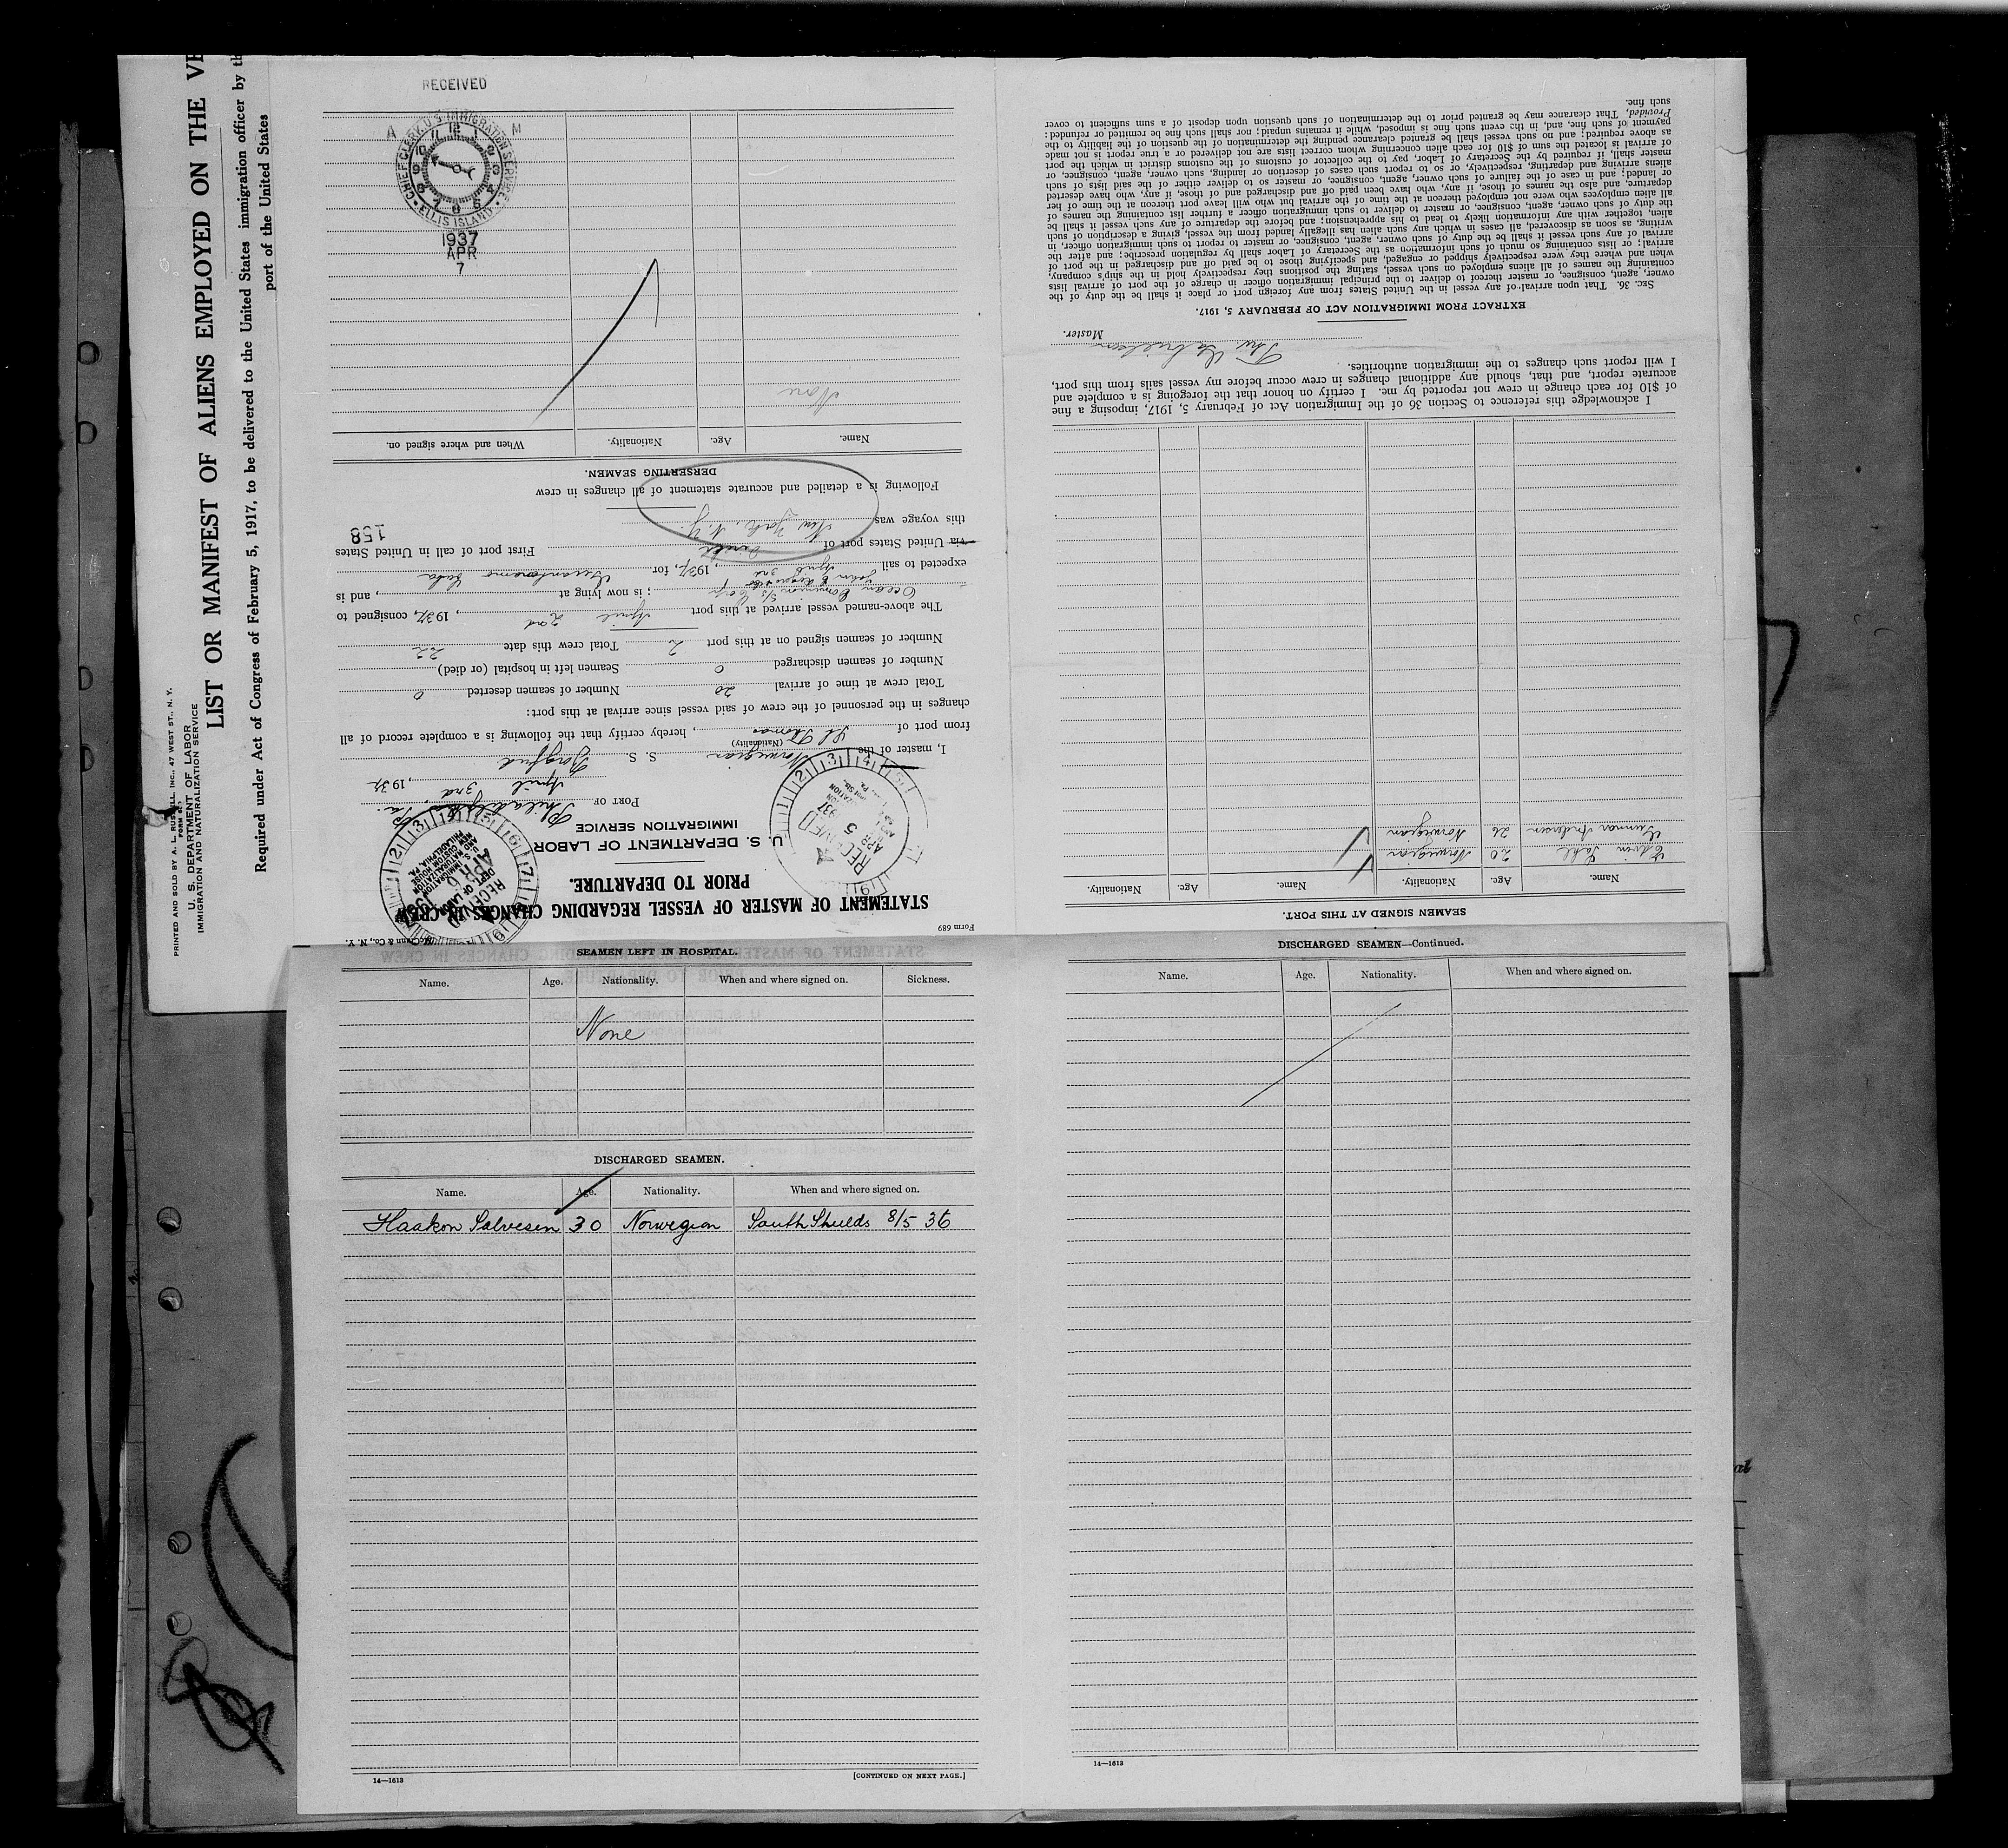 PRINTED AND SOLD BY A. L. RUSSELL, INC., 47 WEST ST., N. Y.
U. S. DEPARTMENT OF LABOR
IMMIGRATION AND NATURALIZATION SERVICE
LIST OR MANIFEST OF ALIENS EMPLOYED ON THE
Required under Act of Congress of February 5, 1917, to be delivered to the United States immigration officer by
port of the United States
RECEIVED
A M
CHIEF CLERK U.S IMMIGRATION SERVICE
ELLIS ISLAND
1937
APR
7
Form 689
STATEMENT OF MASTER OF VESSEL REGARDING CHANGES IN CREW
PRIOR TO DEPARTURE.
U. S. DEPARTMENT OF LABOR
IMMIGRATION SERVICE
PORT OF Philadelphia Pa.
April 3rd, 1937.
I, master of the Norwegian S. S. Borgfred
(Nationality)
from port of St Thomas, hereby certify that the following is a complete record of all
changes in the personnel of the crew of said vessel since arrival at this port:
Total crew at time of arrival 20 Number of seamen deserted 0
Number of seamen discharged 0 Seamen left in hospital (or died)
Number of seamen signed on at this port 2 Total crew this date 22
The above-named vessel arrived at this port April 2nd, 1937, consigned to
Ocean Dominion S/S Corp; is now lying at, and is
expected to sail April 3rd, 1937, for Guantanamo Cuba
via United States port of Direct First port of call in United States
this voyage was New York, N. Y.
158
Following is a detailed and accurate statement of all changes in crew
DERSERTING SEAMEN.
Name. Age. Nationality. When and where signed on.
None
SEAMEN SIGNED AT THIS PORT.
Name. Age. Nationality. Name. Age. Nationality.
Edvin Dahl 20 Norwegian
Gunnar Andersen 26 Norwegian
I acknowledge this reference to Section 36 of the Immigration Act of February 5, 1917, imposing a fine
of $10 for each change in crew not reported by me. I certify on honor that the foregoing is a complete and
accurate report, and that, should any additional changes in crew occur before my vessel sails from this port,
I will report such changes to the immigration authorities.
Master.
EXTRACT FROM IMMIGRATION ACT OF FEBRUARY 5, 1917.
SEC. 36. That upon arrival of any vessel in the United States from any foreign port or place it shall be the duty of the
owner, agent, consignee, or master thereof to deliver to the principal immigration officer in charge of the port of arrival lists
containing the names of all aliens employed on such vessel, stating the positions they respectively hold in the ship's company,
when and where they were respectively shipped or engaged, and specifying those to be paid off and discharged in the port of
arrival; or lists containing so much of such information as the Secretary of Labor shall by regulation prescribe; and after the
arrival of any such vessel it shall be the duty of such owner, agent, consignee, or master to report to such immigration officer, in
writing, as soon as discovered, all cases in which any such alien has illegally landed from the vessel, giving a description of such
alien, together with any information likely to lead to his apprehension; and before the departure of any such vessel it shall be
the duty of such owner, agent, consignee, or master to deliver to such immigration officer a further list containing the names of
all alien employees who were not employed thereon at the time of the arrival but who will leave port thereon at the time of her
departure, and also the names of those, if any, who have been paid off and discharged and of those, if any, who have deserted
or landed; and in case of the failure of such owner, agent, consignee, or master so to deliver either of the said lists of such
aliens arriving and departing, respectively, or so to report such cases of desertion or landing, such owner, agent, consignee, or
master shall, if required by the Secretary of Labor, pay to the collector of customs of the customs district in which the port
of arrival is located the sum of $10 for each alien concerning whom correct lists are not delivered or a true report is not made
as above required; and no such vessel shall be granted clearance pending the determination of the question of the liability to the
payment of such fine, and, in the event such fine is imposed, while it remains unpaid; nor shall such fine be remitted or refunded:
Provided, That clearance may be granted prior to the determination of such question upon deposit of a sum sufficient to cover
such fine.
SEAMEN LEFT IN HOSPITAL.
Name. Age. Nationality. When and where signed on. Sickness.
None
DISCHARGED SEAMEN.
Name. Age. Nationality. When and where signed on.
Haakon Salvesen 30 Norwegian South Shields 8/5 36
14—1613 [CONTINUED ON NEXT PAGE.]
DISCHARGED SEAMEN—Continued.
Name. Age. Nationality. When and where signed on.
14—1613